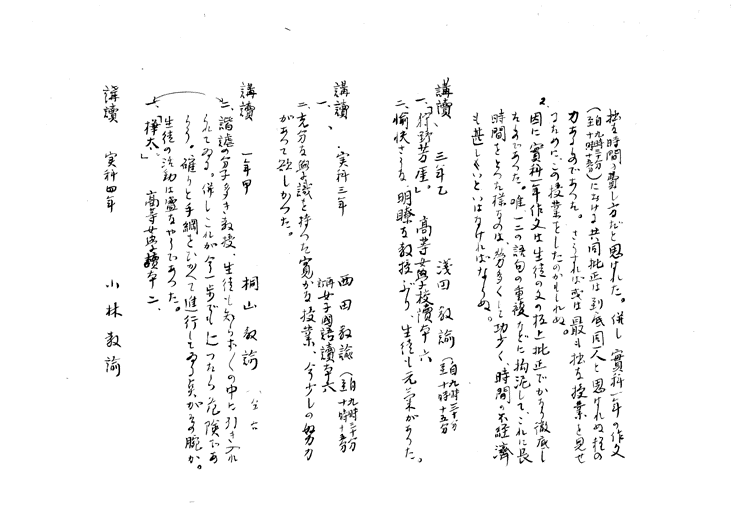 拙き時間の費し方だと思はれた。併し實科一年の作文
(自九時三十分至十時十五分)に於ける共同批正は到底同人と思はれぬ程の
力あるものであつた。さうすれば或は最も拙き授業を見せ
るために、この授業をしたのかもしれぬ。
2. 因に實科一年作文は生徒の文の板上批正でかなり徹底し
たものであつた。唯一二の語句の重複などに拘泥して、これに長
時間をとつた様なのは労多くして功少く、時間の不経済
も甚しいといはなければならぬ。
講讀、三年乙 浅田教諭(自九時三十分至十時十五分)
一、「狩野芳崖」。 高等女學校讀本六
二、愉快さうな明瞭な教授ぶり、生徒も元気があつた。
講讀、實科三年 西田教諭(自九時三十分至十時十五分)
一、 女子國語讀本六
二、充分な學識を持つた寛かな授業、今少しの努力
があつて欲しかつた。
講讀 一年甲 桐山教諭
二、諧謔の分子多き教授、生徒も知らず〱の中に引き入れ
られてゐる。併しこれが今一歩でも上つたら危険であ
らう。確りと手綱をひかへて進行してゐる点がその腕か。
生徒の活動は盛なやうであつた。
一、「樺太」 高等女學讀本二、
講讀 実科四年 小林教諭